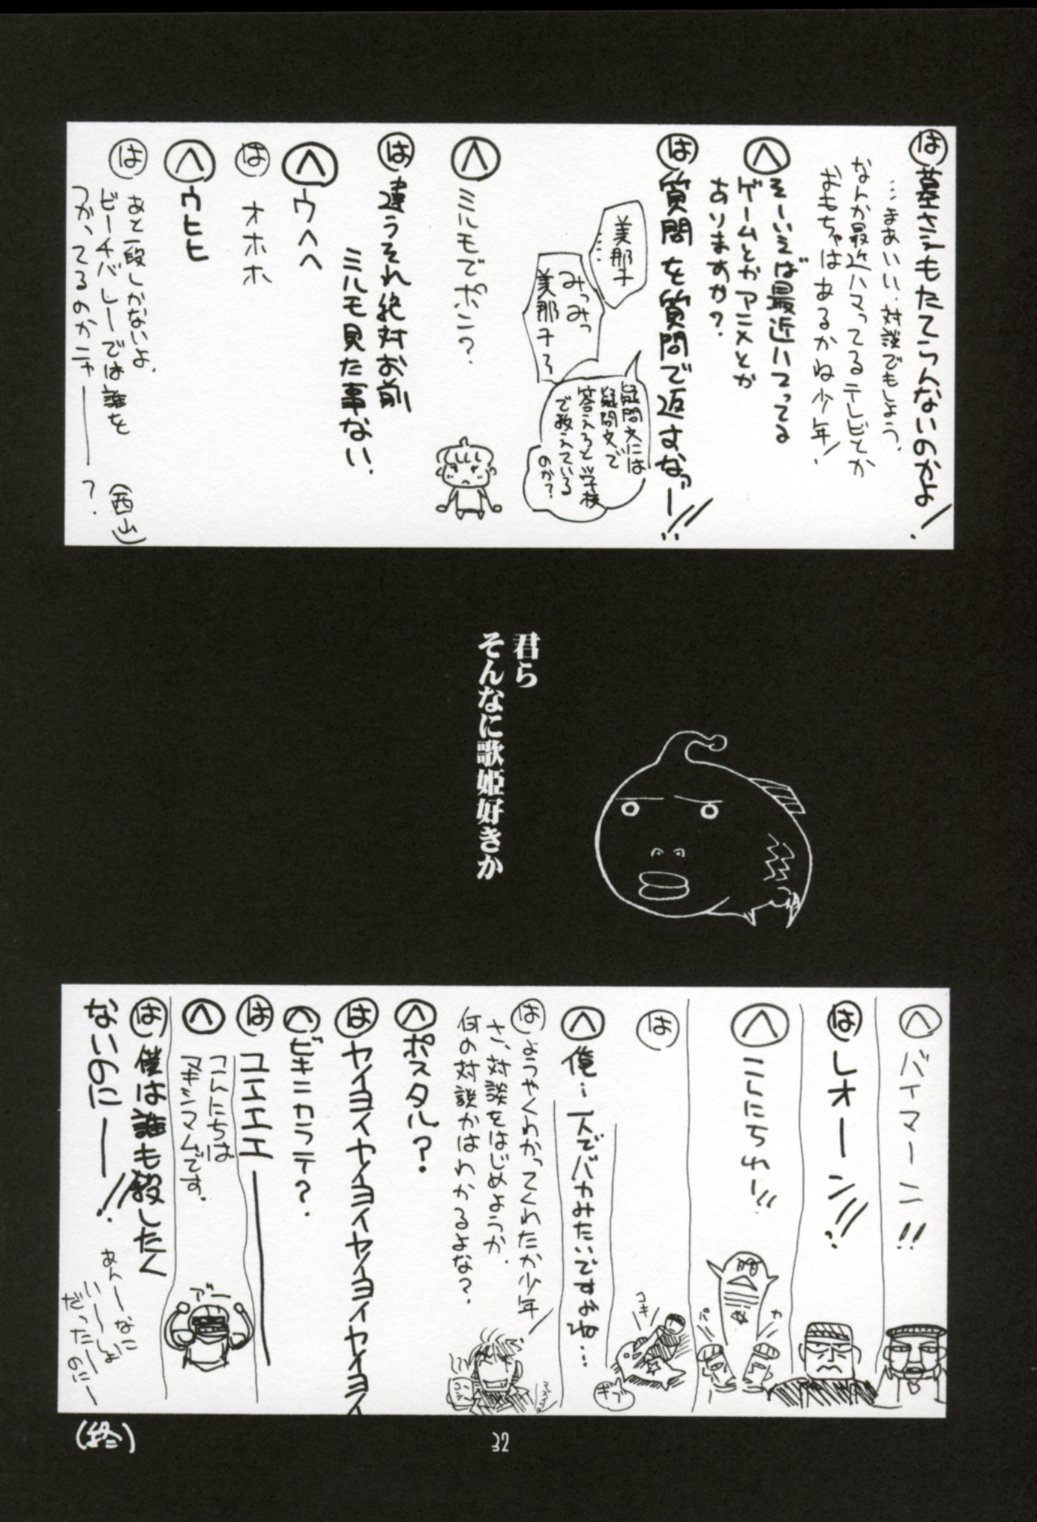 は 墓さえもたてらんないのかよ!
…まあいい、対談でもしよう、
なんか最近ハマってるテレビとか
おもちゃはあるかね少年!
へ そーいえば最近ハマってる
ゲームとかアニメとか
ありますか?
は 質問を質問で返すなっー!!
美那子…
みつみつ
美那子ろ
疑問文には
疑問文で
答えろと学校
で教えている
のか?
へ ミルモでポン?
は 違うそれ絶対お前
ミルモ見た事ない.
へ ウヘヘ
は オホホ
へ ウヒヒ
は あと一段しかないよ、
ビーチバレーでは誰を
つかってるのかニャー?
(西山)
君ら
そんなに歌姫好きか
へ バイマーン!!
は レオーン!!
へ こんにちわー!!
パ
カ
は
コキ
ギッ
へ 俺…一人でバカみたいですよね…
は ようやくわかってくれたか少年!
さ、対談をはじめようか、
何の対談かはわかるよな?
へ ポスタル?
は ヤイヨイヤイヨイヤイヨイヤイヨイ
へ ビキニカラテ?
は ユエエエー
へ こんにちは
マキシマムです.
は 僕は誰も殺したく
ないのにー!!
あんーなに
いーーしょ
だったーのにー
(終)
32